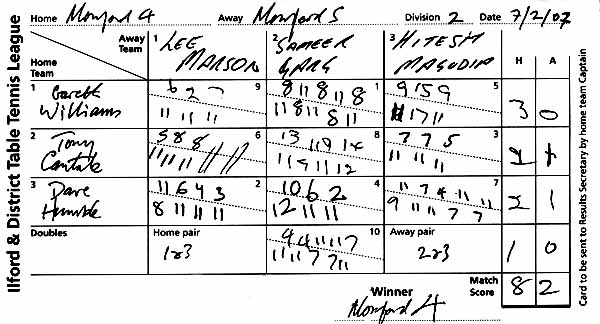 Ilford & District Table Tennis League
Home Monford 4 Away Monford 5 Division 2 Date 7/2/07
Away Team Home Team
1 LEE MARSON
2 SAMEER GARG
3 HITESH MAGUDIA
H A
1 Gareth Williams
9
6 2 7
11 11 11
1
8 11 8 11 8
11 8 11 8 11
5
9 15 9
11 17 11
3 0
2 Tony Cantale
6
5 8 8
11 11 11
8
13 11 9 14
11 9 11 12
3
7 7 5
11 11 11
1
3 Dave Humble
2
11 6 4 3
8 11 11 11
4
10 6 2
12 11 11
7
11 7 4 11 11
9 11 11 7 7
2 1
Doubles
Home pair
1&3
10
9 4 11 11 7
11 11 7 7 11
Away pair
2&3
1 0
Match Score
8 2
Winner
Monford 4
Card to be sent to Results Secretary by home team Captain